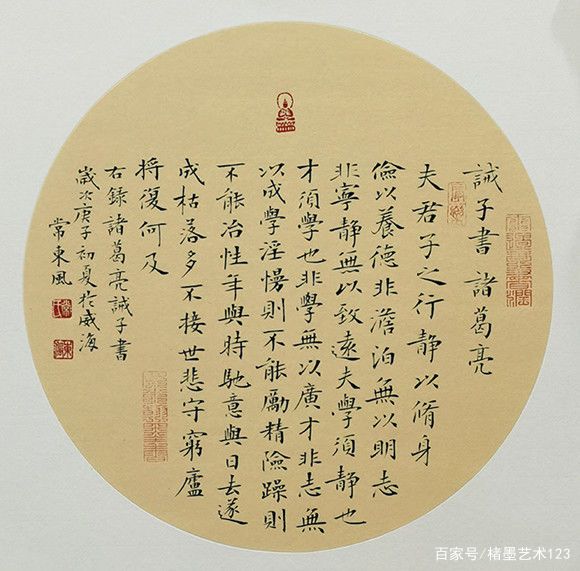 誡子書 諸葛亮
夫君子之行静以脩身
儉以養德非澹泊無以明志
非寧静無以致遠夫學須静也
才須學也非學無以廣才非志無
以成學淫慢則不能勵精險躁則
不能冶性年與時馳意與日去遂
成枯落多不接世悲守窮廬
将復何及
右録諸葛亮誡子書
歲次庚子初夏於威海
常東風
百家号/楮墨艺术123